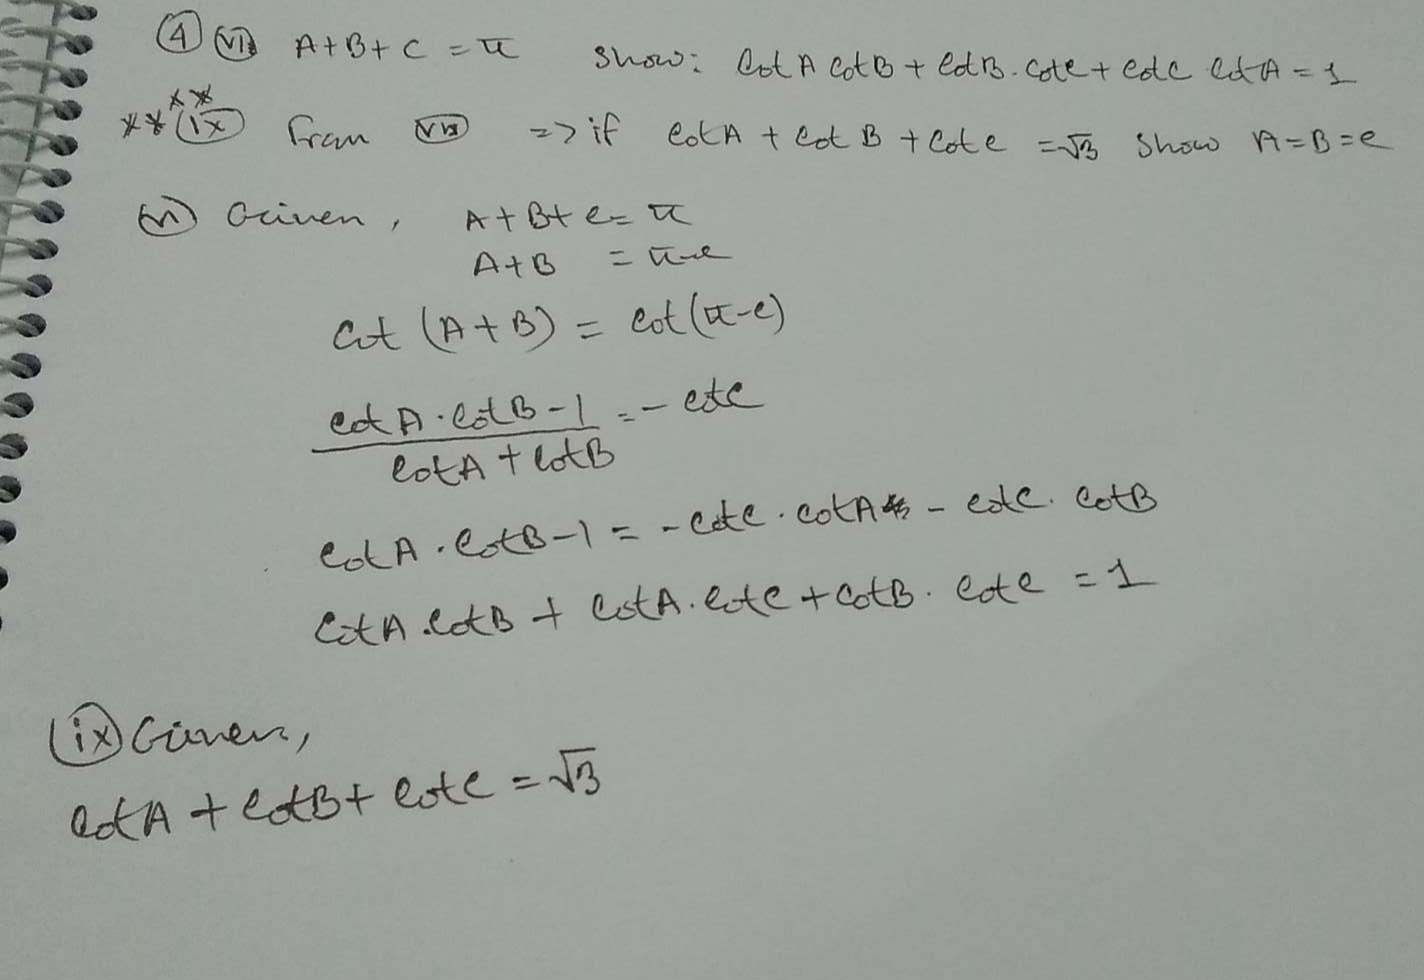 ④ (vi) A+B+C = π Show: Cot A Cot B + Cot B. Cot C + Cot C Cot A = 1
**** (ix) From => if Cot A + Cot B + Cot C = √3 Show A=B=C
(vi) Given, A+B+C = π
A+B = π-C
Cot (A+B) = Cot (π-C)
(Cot A . Cot B - 1)/(Cot A + Cot B) = - Cot C
Cot A . Cot B - 1 = - Cot C . Cot A - Cot C . Cot B
Cot A . Cot B + Cot A . Cot C + Cot B . Cot C = 1
(ix) Given,
Cot A + Cot B + Cot C = √3